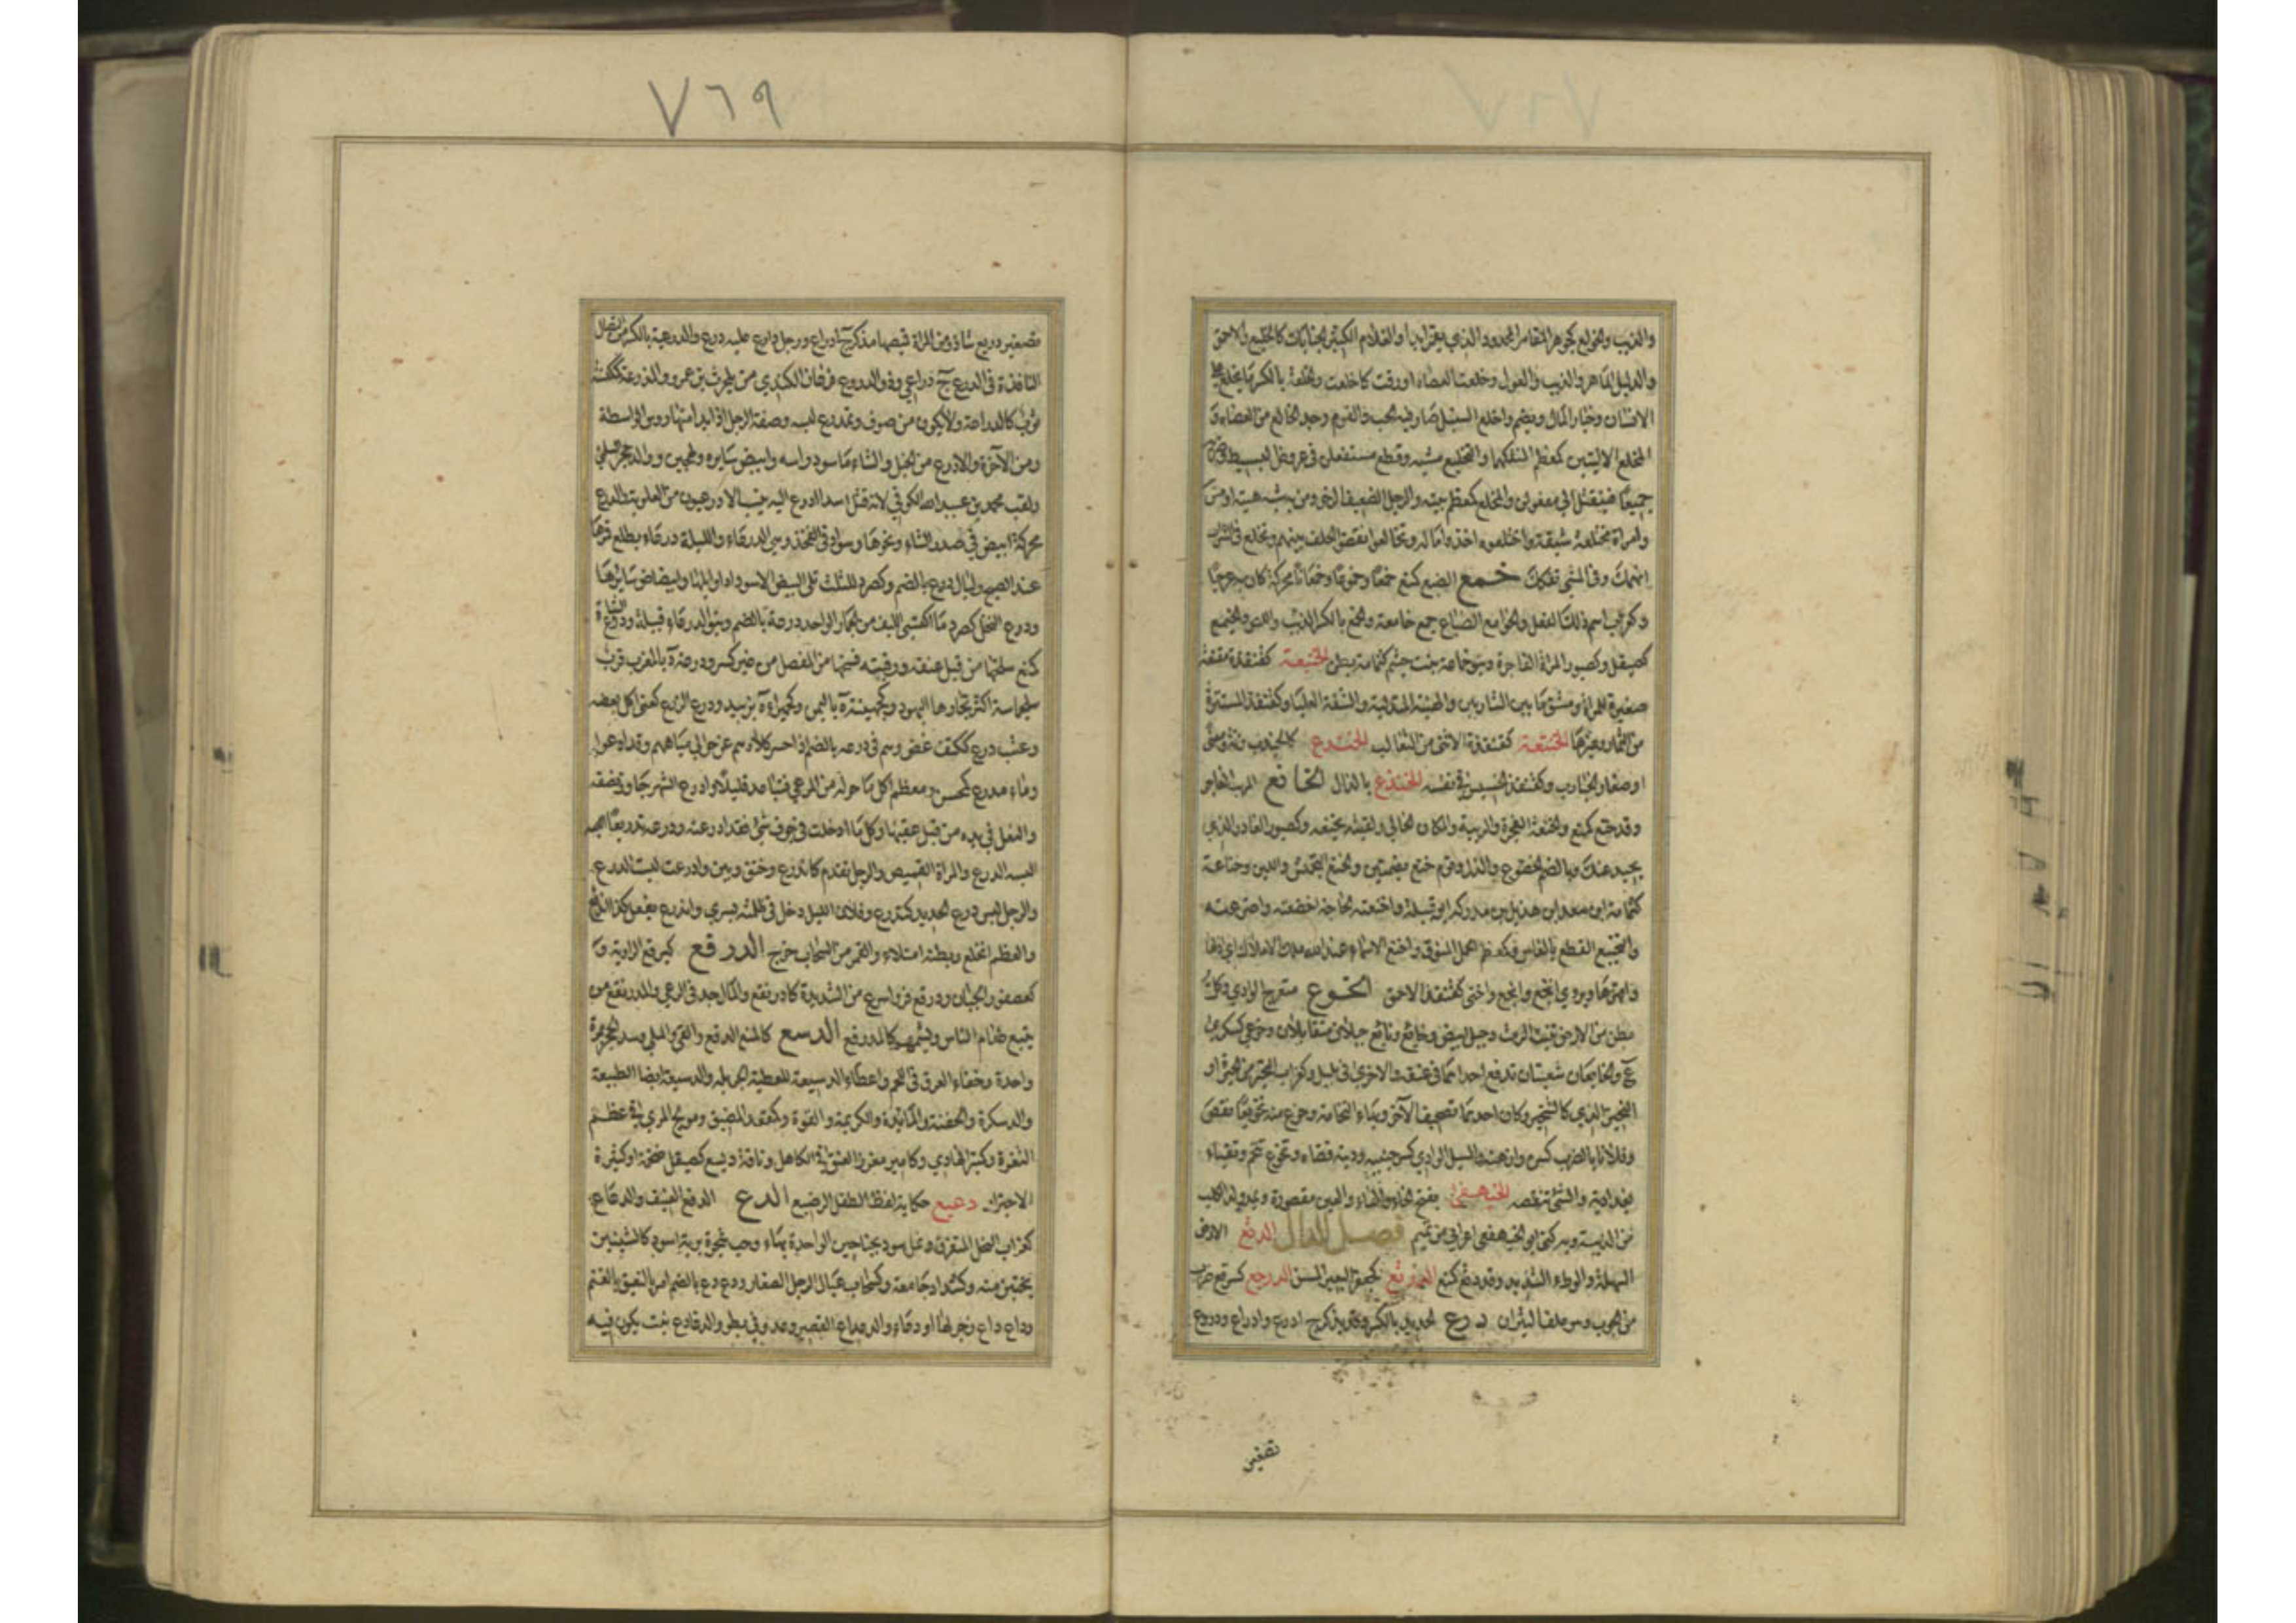 والذيب والخولع كجوهر المقامر المحدود الذي يقمر ابدا والغلام الكثير الجنايات كالخليع والاحمق
والدليل الماهر والذيب والغول وخلعت العضاه اورقت كاخلعت والخلعة بالكسر ما يخلع على
الانسان وخيار المال ويضم واخلع السنبل صار فيه الحب والقوم وجدوا الخالع من العضاه و
المخلع الاليتين كمعظم المنفكهما والتخليع مشيه وقطع مستفعلن في عروض البسيط وضربه
جميعا فينقل الى مفعولن والمخلع كمعظم بيته والرجل الضعيف الرخو ومن به شبه هبتة او مس
وامراة مختلعة شبقة واختلعوه اخذوا ماله وتخالعوا نقضوا الحلف بينهم وتخلع في الشراب
انهمك وفي المشي تفكك خمع الضبع كمنع خمعا وخموعا وخمعانا محركة كان به عرجا
وكغراب اسم ذلك الفعل والخوامع الضباع جمع خامعة والخمع بالكسر الذيب واللص والخيمع
كصيقل وكصبور المراة الفاجرة وبنو خماعة بنت جشم كثمامة بطن الخنبعة كقنفذة مقنعة
صغيرة للمراة ومشق ما بين الشاربين والهنية المتدلية والشفة العليا وكقنفذ المستترة
من الثمار وغيرها الخنتعة كقنفذة الانثى من الثعالب الخندع كالجندب زنة ومعنى
او صغار الجنادب وكقنفذ الخسيس في نفسه الخنذع بالذال الخانع المريب الفاجر
وقد خنع كمنع والخنعة الفجرة والريبة والمكان الخالي ولقيته بخنعه وكصبور الغادر الذي
يحيد عنك وبالضم الخضوع والذل وقوم خنع بضمتين والخنع التجمش واللين وخناعة
كثمامة ابن سعد ابن هذيل بن مدركة ابو قبيلة واخنعته الحاجة اخضعته واضرعته
والتخنيع القطع بالفاس وكمعظم الجمل المنوق واخنع الاسماء عند الله ملك الاملاك اي اذلها
واقهرها ويروى انخع وابخع واخنى كقنفذ الاحمق الخوع منعرج الوادي وكل
بطن من الارض ينبت الرمث وجبل ابيض وخايع ونايع جبلان متقابلان وخوعى كسكرى
ع والخايعان شعبتان تدفع احداهما في غيقة والاخرى في يليل وكغراب التحير من الحيرة او
النخير الذي كالشخير وكان احدهما تصحيف الآخر وبهاء النخامة وخوع منه تخويعا نقص
وفلانا بالضرب كسره واوهنه والسيل الوادي كسر جنبيه ودينه قضاه وتخوع تنخم وتقياء
بغدادية والشي تنقصه الخيهفعى بفتح الخاء والهاء والعين مقصورة وتمد ولد الكلب
من الذيبة وبه كني ابو الخيهفعى اعرابي من تميم فصل الدال الدثع الارض
السهلة والوطء الشديد وقد دثع كمنع الدثرع كجعفر البعير المسن الدرجع كسرقع ضرب
من الحبوب وهو علف الثيران درع الحديد بالكسر وقد يذكر ج ادرع وادراع ودروع
تصغير
٧٦٩
تصغير دريع شاذ ومن المراة قميصها مذكر ج ادراع ورجل دارع عليه درع والدرعية بالكسر من النصال
النافذة في الدرع ج دراعي وذو الدروع فرعان الكندي من الحرث بن عمرو والمدرعة كمكنسة
ثوب كالدراعة ولا يكون من صوف وتمدرع لبسه وصفة الرجل اذا بدا منها رووس الواسطة
ومن الآخرة والادرع من الخيل والشاء ما اسود راسه وابيض سايره والهجين ووالد حجر السلمي
ولقب محمد بن عبيد الله الكوفي لانه قتل اسدا ادرع اليه ينسب الادرعيون من العلوية والدرع
محركة بياض في صدر الشاء ونحوها وسواد في الفخذ وهي الدرعاء والليلة درعاء يطلع قمرها
عند الصبح وليال درع بالضم وكصرد للثلث تلي البيض لاسوداد اوايلها وابيضاض سايرها
ودرع النخل كصرد ما اكتسى الليف من الجمار الواحد درعة بالضم وبنو الدرعاء قبيلة ودرع الشاة
كمنع سلخها من قبل عنقه ورقبته فسخها من المفصل من غير كسر ودرعة ة بالمغرب قرب
سجلماسة اكثر تجارها اليهود وكجهينة ة باليمن وكحميراء ة بزبيد ودرع الزرع كعنى اكل بعضه
وعشب درع ككتف غض وهم في درعه بالضم اذا احسر كلاءهم عن حوالي مياههم وقد ادرعوا
وماء مدرع كمحسن ومعظم اكل ما حوله من المرعى فتباعد قليلا وادرع الشهر جاوز نصفه
والنعل في يده من قبل عقبها وكل ما ادخلت في جوف شي فقد ادرعته ودرعه تدريعا
البسه الدرع والمراة القميص والرجل تقدم كاندرع وخنق وبين وادرعت لبست الدرع
والرجل لبس درع الحديد كتدرع وفلان الليل دخل في ظلمته يسري واندرع يفعل كذا اندفع
والعظم انخلع وبطنه امتلاء والقمر من السحاب خرج الدرقع كبرقع الراوية و
كعصفور الجبان ودرقع فر واسرع من الشديدة كادرنقع والمال جد في الرعي والمدرنقع من
يتبع طعام الناس ويشتمهم كالمدرقع الدسع كالمنع الدفع والقى والملى وسد الحجر مرة
واحدة وخفاء العرق في اللحم واعطاء الدسيعة للعطية الجزيلة والدسيعة ايضا الطبيعة
والدسكرة والجفنة والمائدة والكريمة والقوة وكمقعد المضيق ومولج المري في عظم
الثغرة وكمنبر الهادي وكامير مغرز العنق في الكاهل وناقة ديسع كصيقل ضخمة او كثيرة
الاجترار دعبع حكاية لفظ الطفل الرضيع الدع الدفع العنيف والدعاع
كغراب النخل المتفرق ونمل سود بجناحين الواحدة بهاء وحب شجرة برية اسود كالشينيز
يختبز منه وكشداد جامعه وكسحاب عيال الرجل الصغار ودع دع بالضم امر بالنعيق بالغنم
وداع داع زجر لها او دعاء والدعداع القصير وعدو في بطء والدعادع نبت يكون فيه